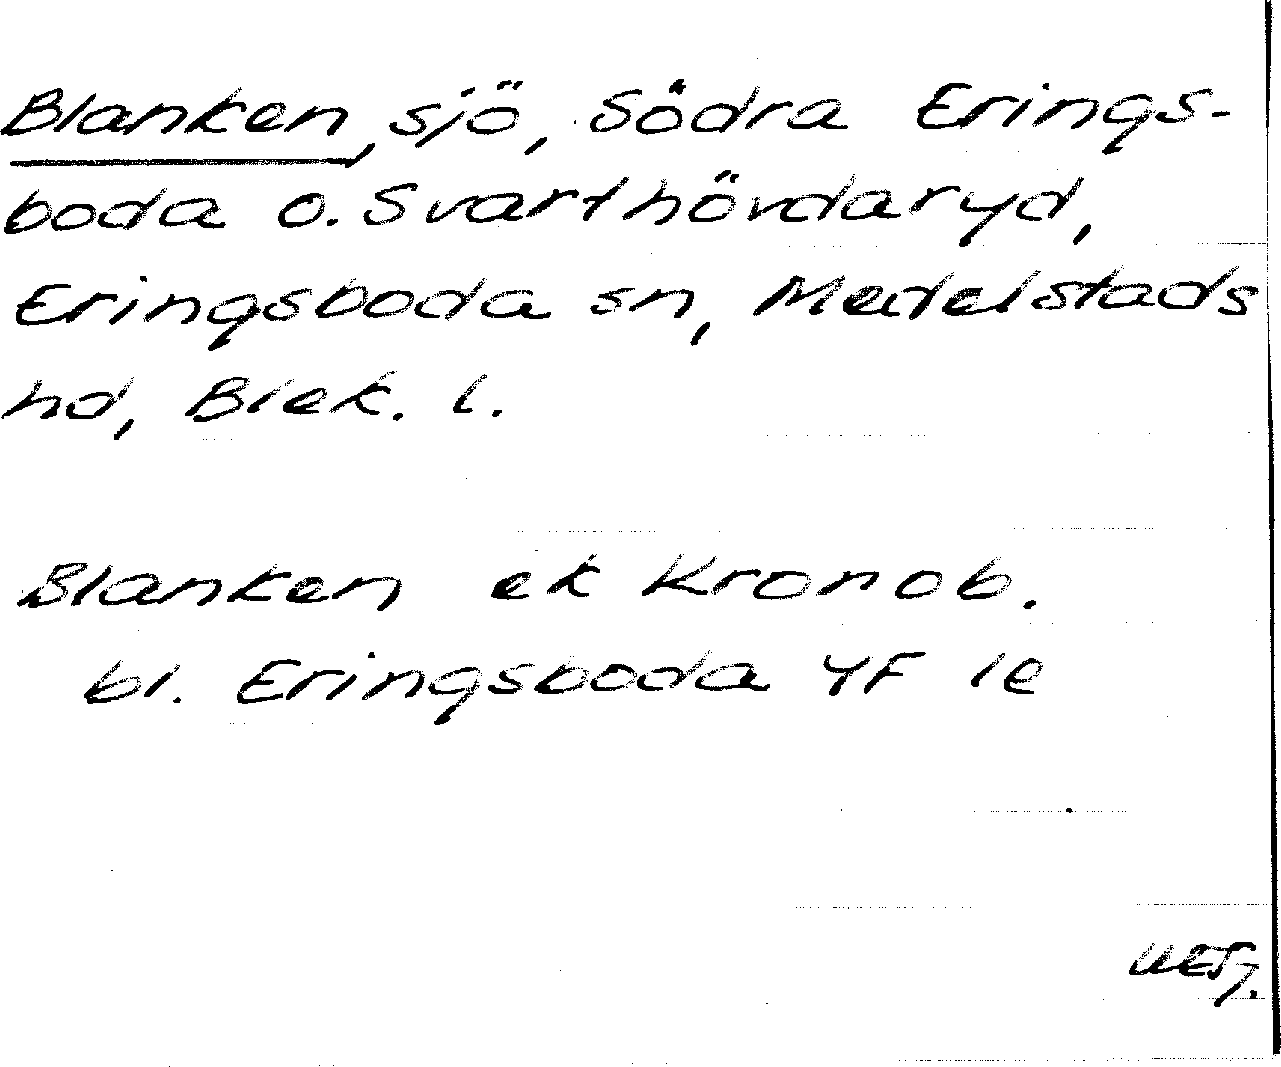 Blanken, sjö, Södra Erings-
boda o. Svarthövdaryd,
Eringsboda sn, Medelstads
hd, Blek. l.
Blanken ek Kronob.
bl. Eringsboda 4F 1e